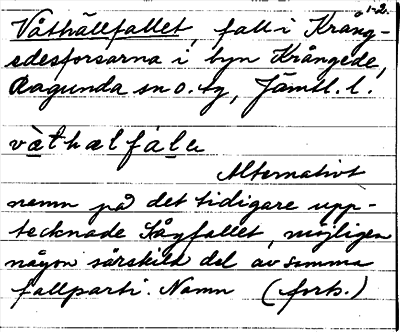 1-2.
Våthällfallet, fall i Krång-
edesforsarna i byn Krångede,
Ragunda sn o. tg, Jämtl. l.
vàthælfàlɛ
Alternativt
namn på det tidigare upp-
tecknade Lågfallet, möjligen
någon särskild del av samma
fallparti. Namn (forts.)